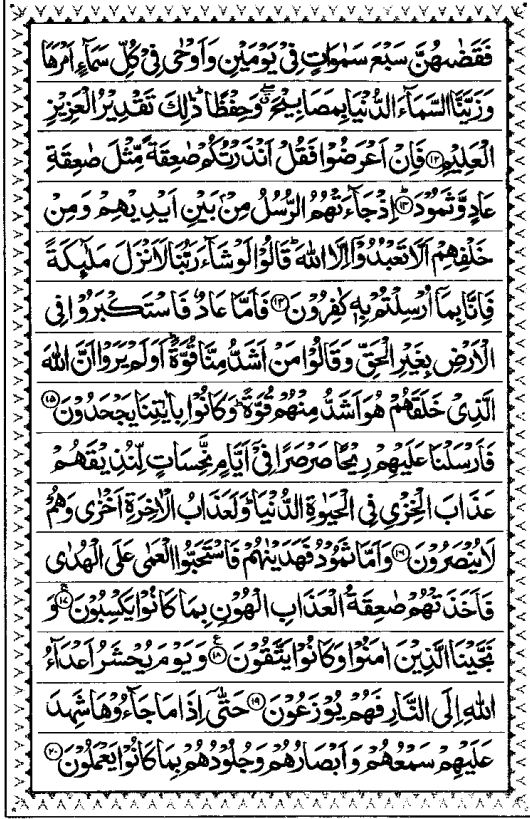 فَقَضٰىهُنَّ سَبْعَ سَمٰوَاتٍ فِىْ يَوْمَيْنِ وَاَوْحٰى فِىْ كُلِّ سَمَآءٍ اَمْرَهَا
وَزَيَّنَّا السَّمَآءَ الدُّنْيَا بِمَصَابِيْحَ ۖ وَحِفْظًا ؕ ذٰلِكَ تَقْدِيْرُ الْعَزِيْزِ
الْعَلِيْمِ ﴿۱۲﴾ فَاِنْ اَعْرَضُوْا فَقُلْ اَنْذَرْتُكُمْ صٰعِقَةً مِّثْلَ صٰعِقَةِ
عَادٍ وَّثَمُوْدَ ؕ﴿۱۳﴾ اِذْ جَآءَتْهُمُ الرُّسُلُ مِنْۢ بَيْنِ اَيْدِيْهِمْ وَمِنْ
خَلْفِهِمْ اَلَّا تَعْبُدُوْۤا اِلَّا اللّٰهَ ؕ قَالُوْا لَوْ شَآءَ رَبُّنَا لَاَنْزَلَ مَلٰٓئِكَةً
فَاِنَّا بِمَاۤ اُرْسِلْتُمْ بِهٖ كٰفِرُوْنَ ﴿۱۴﴾ فَاَمَّا عَادٌ فَاسْتَكْبَرُوْا فِى
الْاَرْضِ بِغَيْرِ الْحَقِّ وَقَالُوْا مَنْ اَشَدُّ مِنَّا قُوَّةً ؕ اَوَلَمْ يَرَوْا اَنَّ اللّٰهَ
الَّذِىْ خَلَقَهُمْ هُوَ اَشَدُّ مِنْهُمْ قُوَّةً ؕ وَكَانُوْا بِاٰيٰتِنَا يَجْحَدُوْنَ ﴿۱۵﴾
فَاَرْسَلْنَا عَلَيْهِمْ رِيْحًا صَرْصَرًا فِىْۤ اَيَّامٍ نَّحِسَاتٍ لِّنُذِيْقَهُمْ
عَذَابَ الْخِزْىِ فِى الْحَيٰوةِ الدُّنْيَا ؕ وَلَعَذَابُ الْاٰخِرَةِ اَخْزٰى وَهُمْ
لَا يُنْصَرُوْنَ ﴿۱۶﴾ وَاَمَّا ثَمُوْدُ فَهَدَيْنٰهُمْ فَاسْتَحَبُّوا الْعَمٰى عَلَى الْهُدٰى
فَاَخَذَتْهُمْ صٰعِقَةُ الْعَذَابِ الْهُوْنِ بِمَا كَانُوْا يَكْسِبُوْنَ ۚ﴿۱۷﴾ وَ
نَجَّيْنَا الَّذِيْنَ اٰمَنُوْا وَكَانُوْا يَتَّقُوْنَ ﴿۱۸﴾ ع وَيَوْمَ يُحْشَرُ اَعْدَآءُ
اللّٰهِ اِلَى النَّارِ فَهُمْ يُوْزَعُوْنَ ﴿۱۹﴾ حَتّٰىۤ اِذَا مَا جَآءُوْهَا شَهِدَ
عَلَيْهِمْ سَمْعُهُمْ وَاَبْصَارُهُمْ وَجُلُوْدُهُمْ بِمَا كَانُوْا يَعْمَلُوْنَ ﴿۲۰﴾